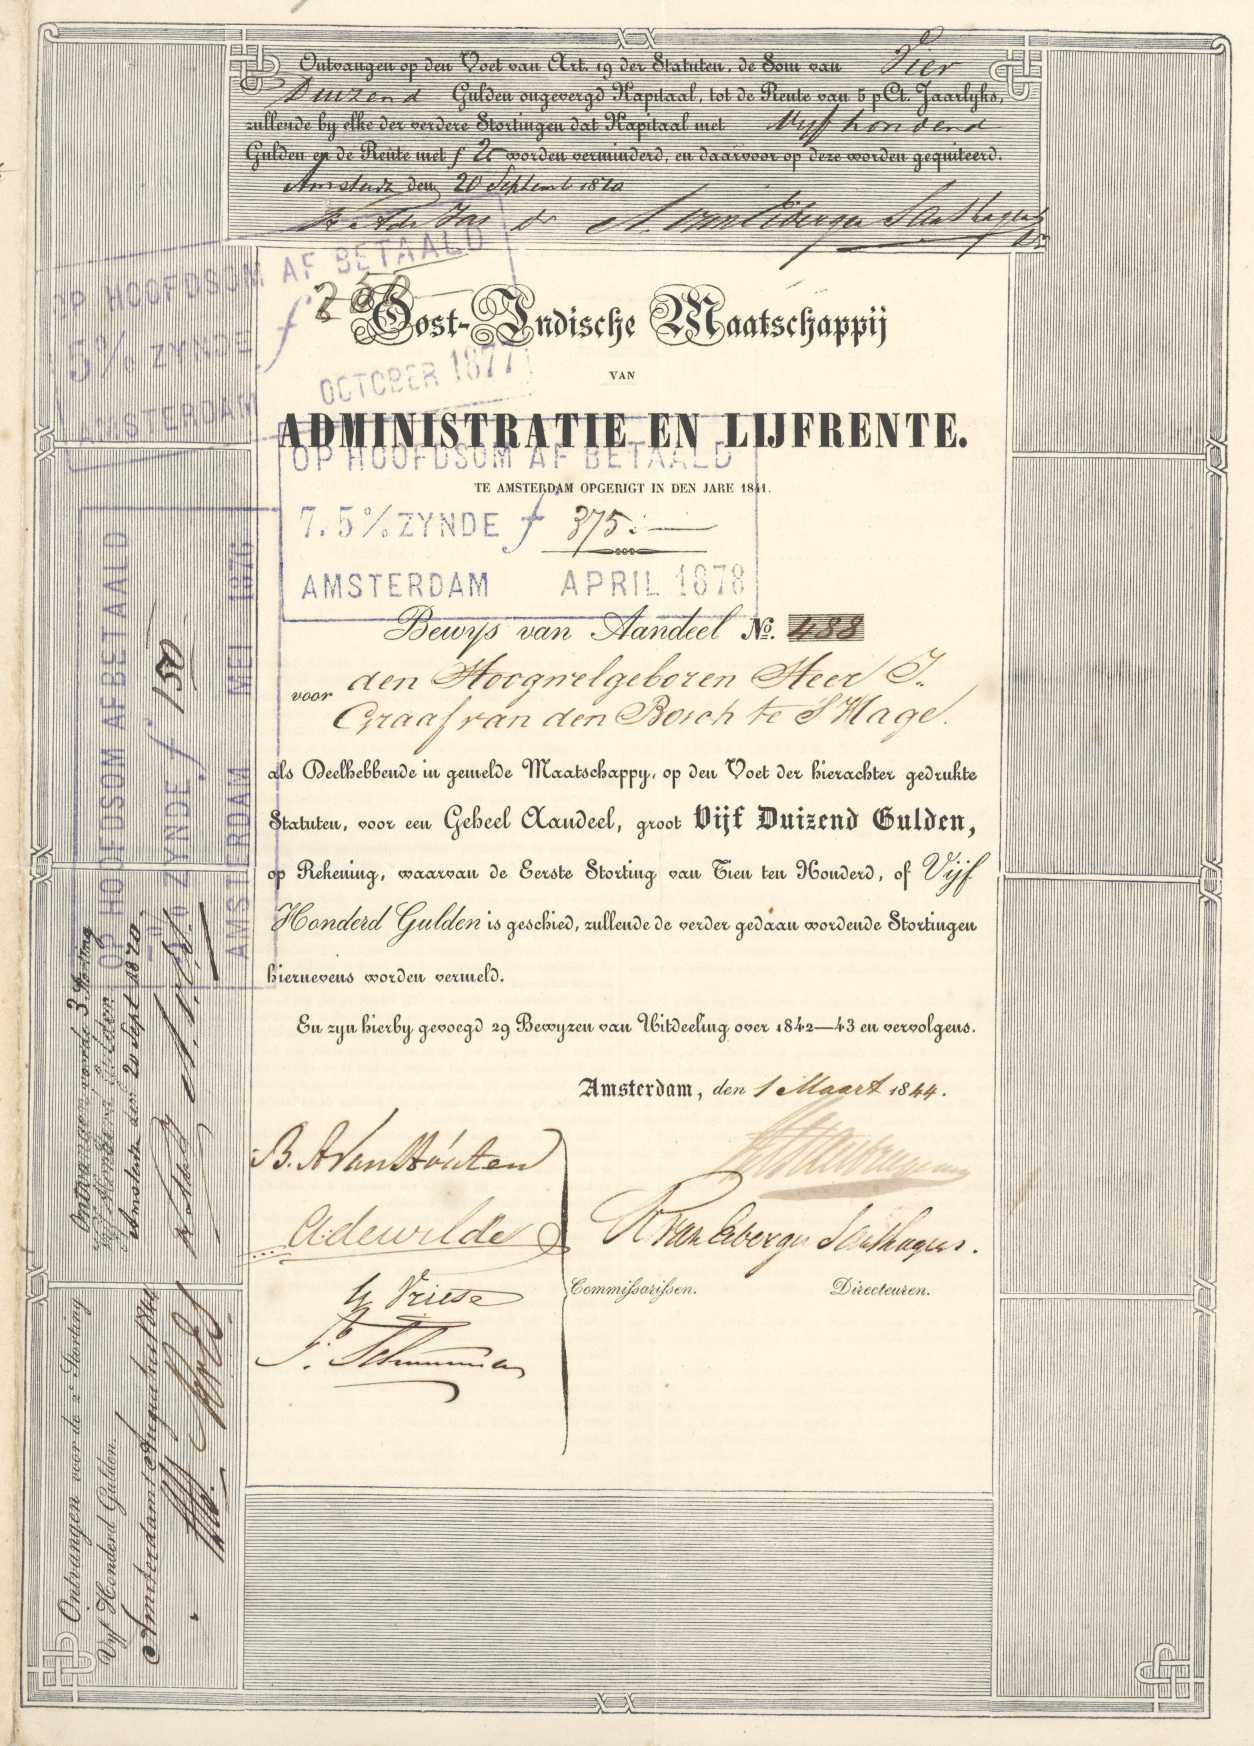 Ontvangen op den Voet van Art. 19 der Statuten, de Som van Vier
Duizend Gulden ongevergd Kapitaal, tot de Rente van 5 pCt. Jaarlyks,
zullende by elke der verdere Stortingen dat Kapitaal met Vyf honderd
Gulden en de Rente met f 25 worden verminderd, en daarvoor op deze worden gequiteerd.
Amsterd den 20 Septemb 1870
OP HOOFDSOM AF BETAALD
5% ZYNDE f 250
AMSTERDAM OCTOBER 1877
Oost-Indische Maatschappij
VAN
ADMINISTRATIE EN LIJFRENTE.
TE AMSTERDAM OPGERIGT IN DEN JARE 1841.
OP HOOFDSOM AF BETAALD
7.5% ZYNDE f 375.—
AMSTERDAM APRIL 1878
Bewys van Aandeel No. 488
voor den Hoogwelgeboren Heer J.
Graaf van den Bosch te S'Hage.
als Deelhebbende in gemelde Maatschappy, op den Voet der hierachter gedrukte
Statuten, voor een Geheel Aandeel, groot Vijf Duizend Gulden,
op Rekening, waarvan de Eerste Storting van Tien ten Honderd, of Vijf
Honderd Gulden is geschied, zullende de verder gedaan wordende Stortingen
hiernevens worden vermeld.
En zyn hierby gevoegd 29 Bewyzen van Uitdeeling over 1842—43 en vervolgens.
Amsterdam, den 1 Maart 1844.
B. A van Houten
A: de wilde
G Vriese
Commissarissen.
Directeuren.
OP HOOFDSOM AF BETAALD
3% ZYNDE f 150
AMSTERDAM MEI 1876
Ontvangen voor de 3e Storting
Vyf Honderd Gulden.
Amsterd den 20 Sept 1870
Ontvangen voor de 2e Storting
Vyf Honderd Gulden.
Amsterdam 1 Augustus 1844